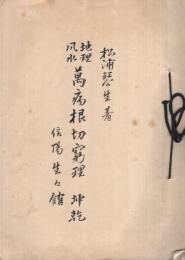 松浦琴生著
地理風水 萬病根切窮理 坤乾
信陽 生々館